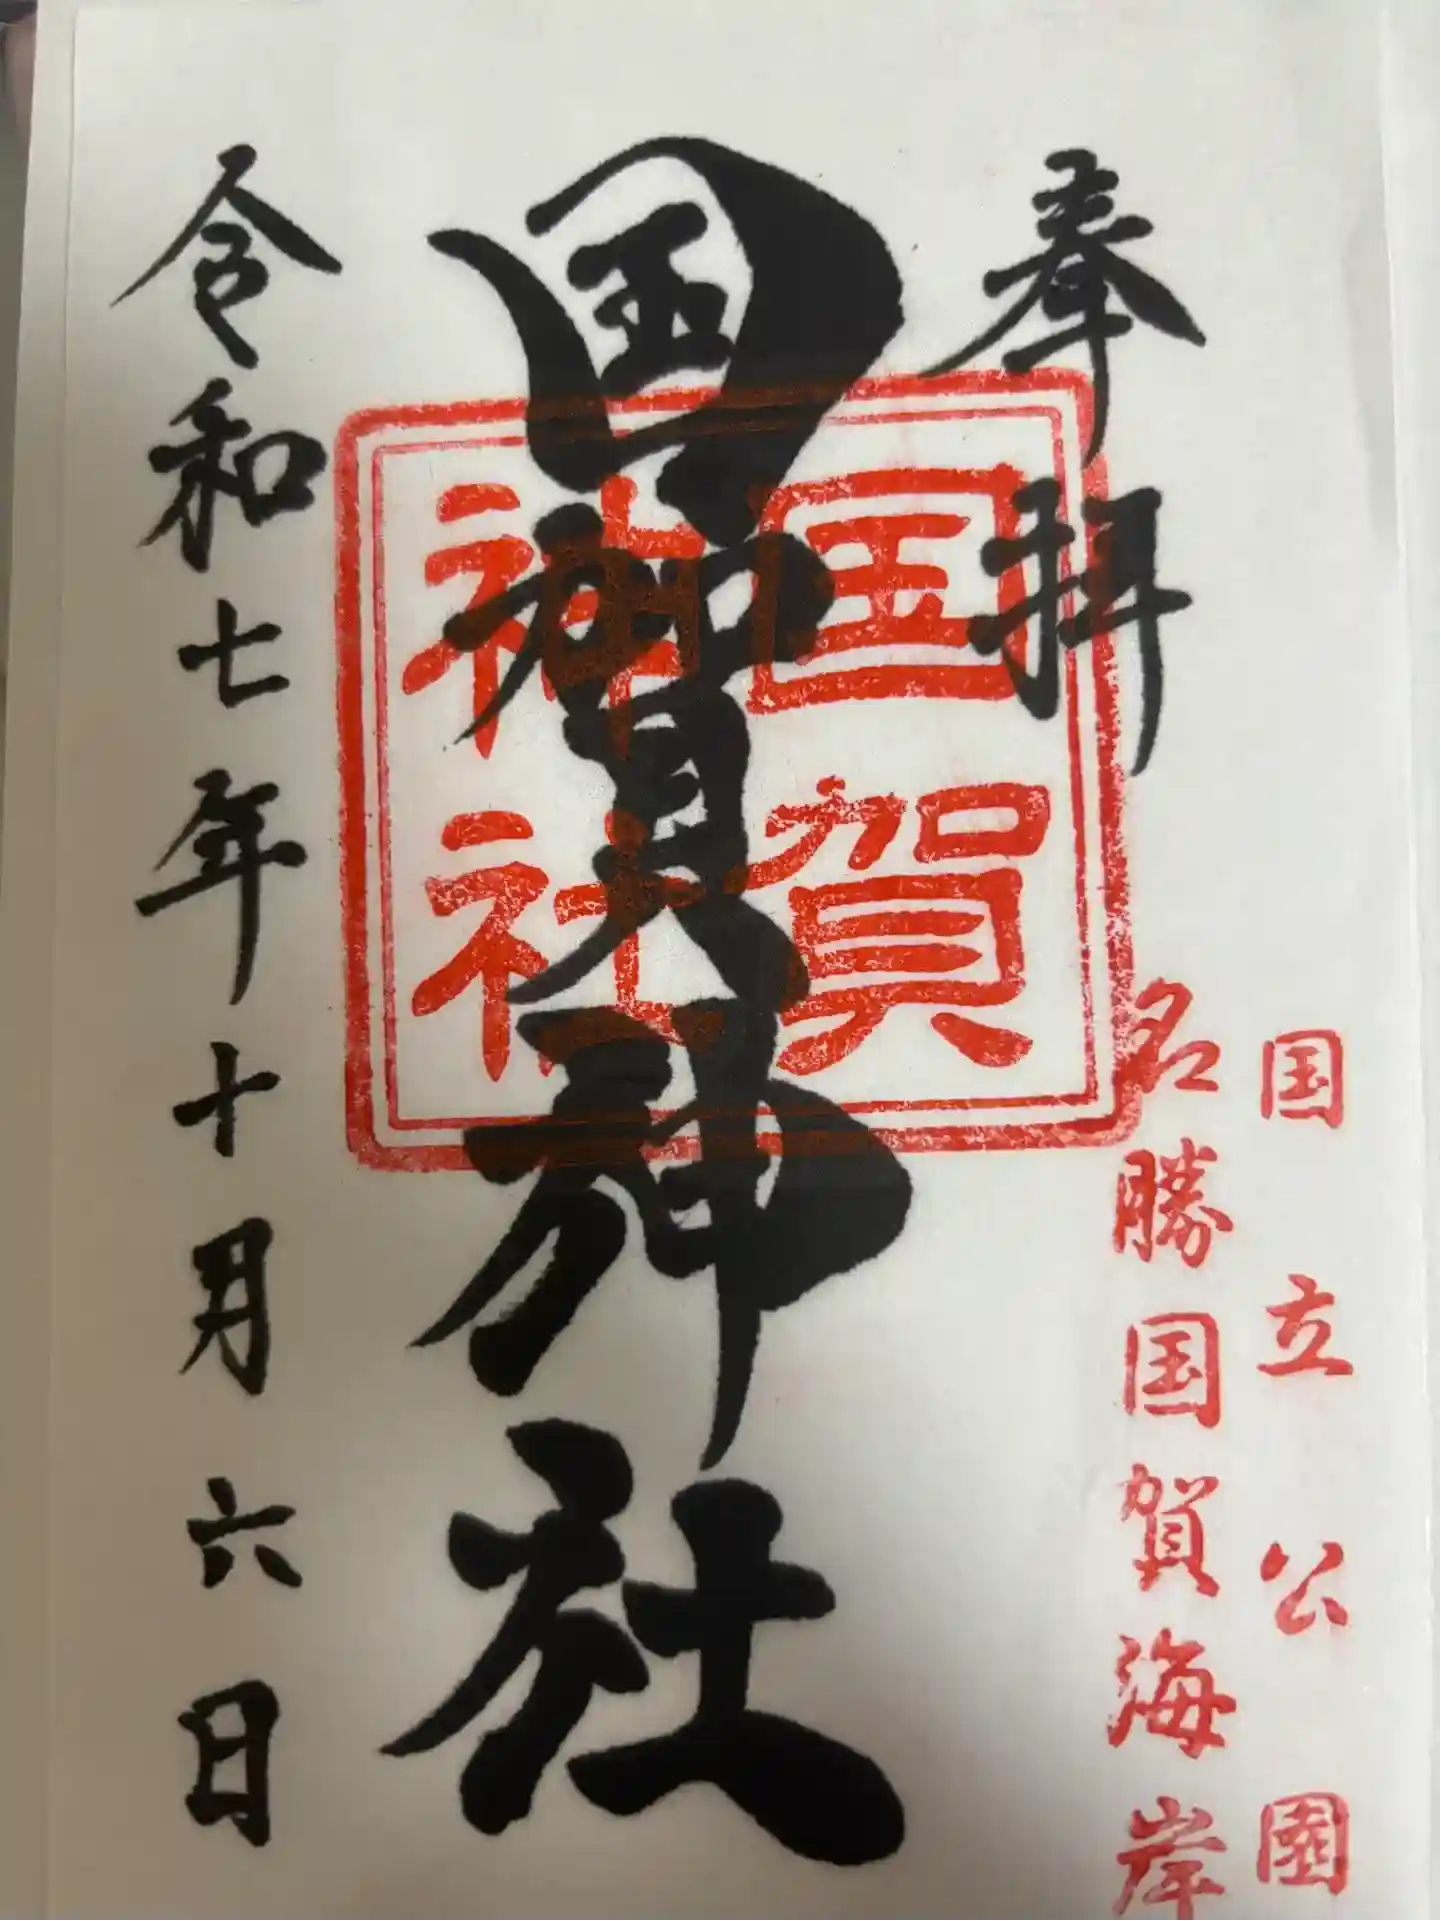 国立公園
名勝国賀海岸
奉拝
国賀神社
国賀
神社
令和七年十月六日